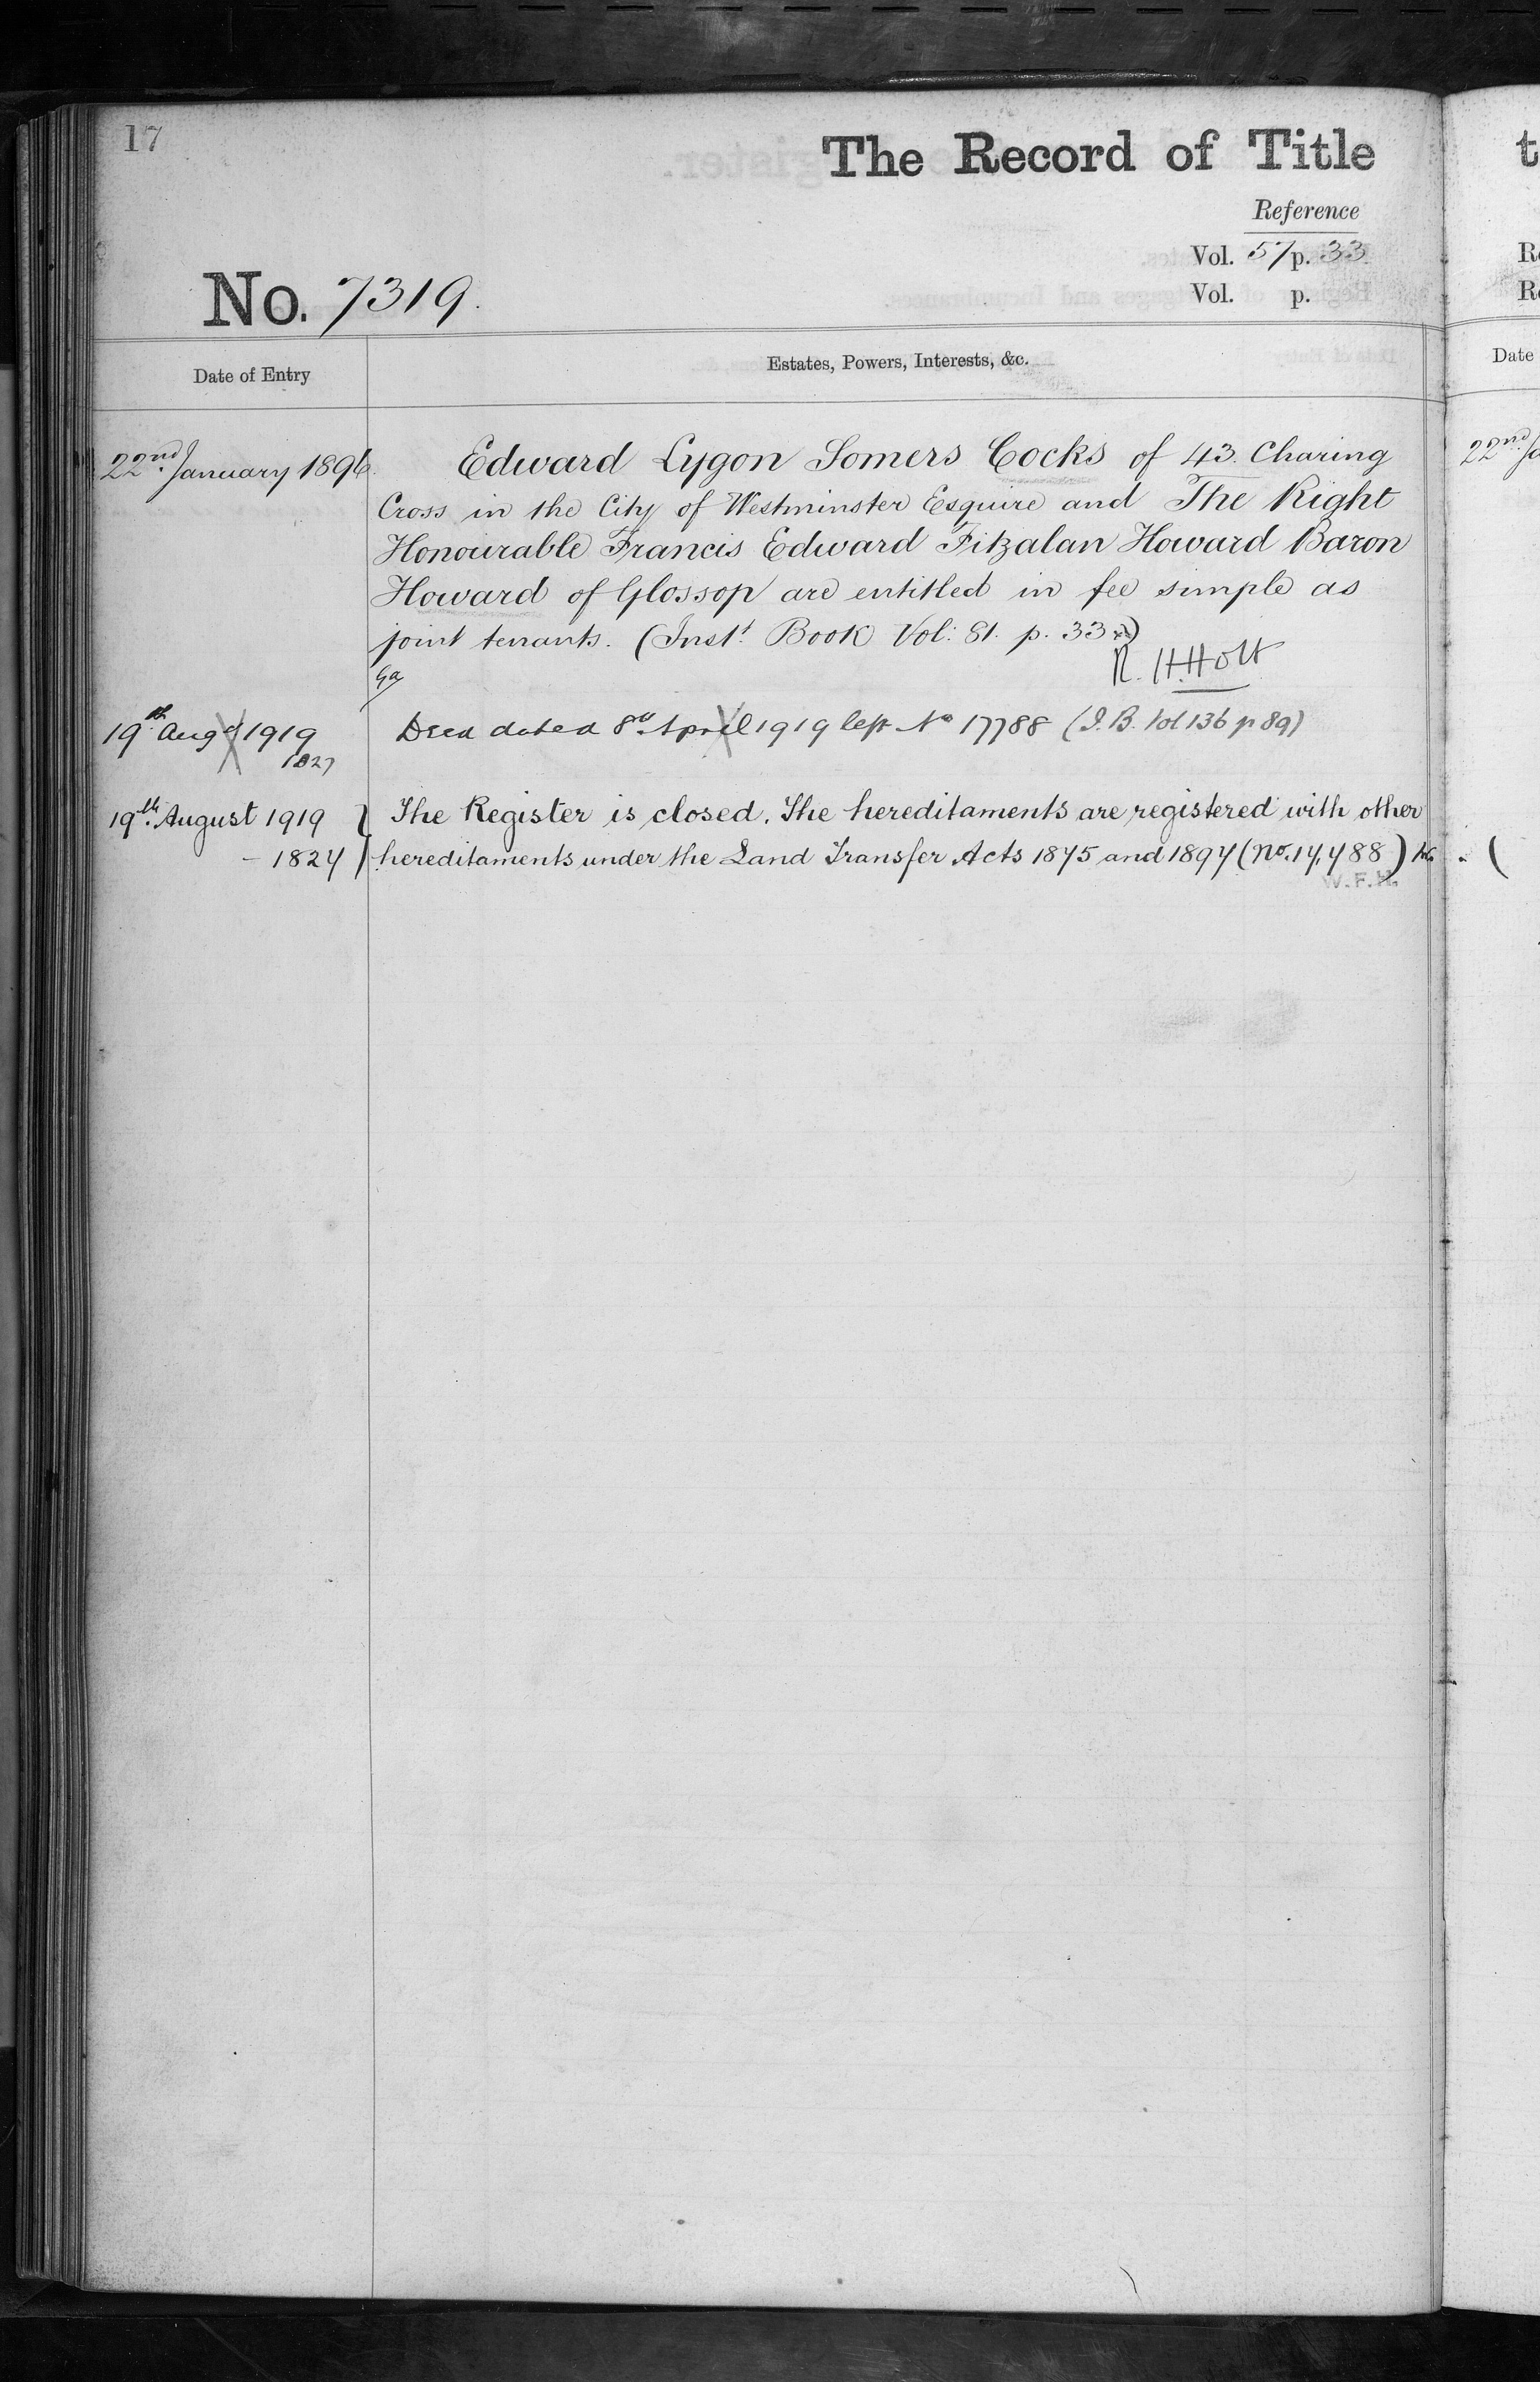 17
The Record of Title
Reference
Vol. 57 p. 33
No. 7319.
Vol. p.
Date of Entry
Estates, Powers, Interests, &c.
22nd January 1896.
Edward Lygon Somers Cocks of 43. Charing
Cross in the City of Westminster Esquire and The Right
Honourable Francis Edward Fitzalan Howard Baron
Howard of Glossop are entitled in fee simple as
joint tenants. (Inst. Book Vol: 81. p. 33)
R. H. Holt
19th Augt 1919
Deed dated 8th April 1919 left No 17788 (I.B. Vol 136 p 89)
1827
19th August 1919
The Register is closed. The hereditaments are registered with other
– 1827
hereditaments under the Land Transfer Acts 1875 and 1897 (No. 17,788)
W.F.H.
t
Re
Re
Date
22nd Ja
(